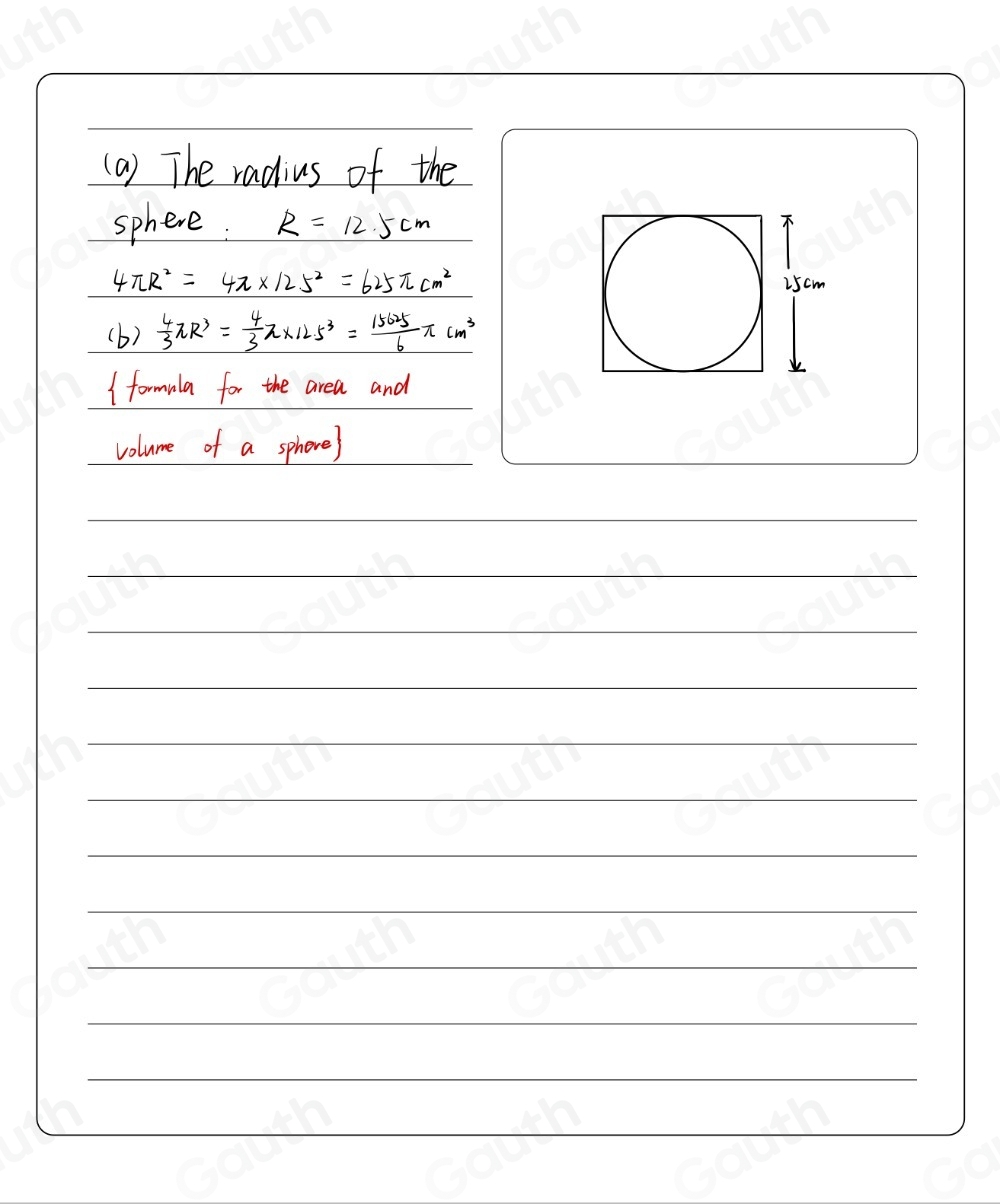 (a) The radius of the
sphere. R = 12.5cm
4πR² = 4π×12.5² = 625π cm²
(b) 4/3 πR³ = 4/3 π×12.5³ = 15625/6 π cm³
{formula for the area and
volume of a sphere}
25cm